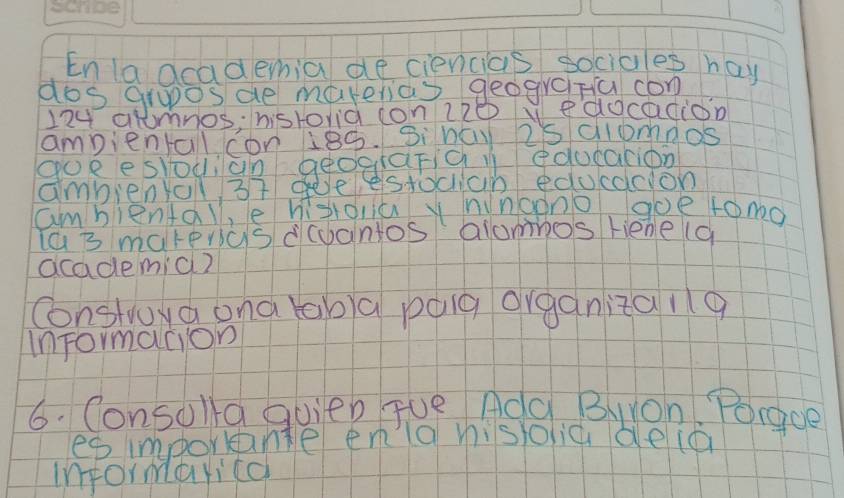 Scribe
En la academia de ciencias sociales hay
dos grupos de materias geografia con
124 alumnos; historia con 220 y educacion
ambiental con 185. Si hay 25 alomnos
que estodian geografia y educacion
ambiental, 37 que estodian educacion
ambiental, e historia y ninguno que toma
la 3 materias ¿cuantos alomnos tiene la
academia?
Construya ona tabla para organizar la
informacion
6. Consulta quien fue Ada Byron. Porque
es importante en la historia de la
informatica